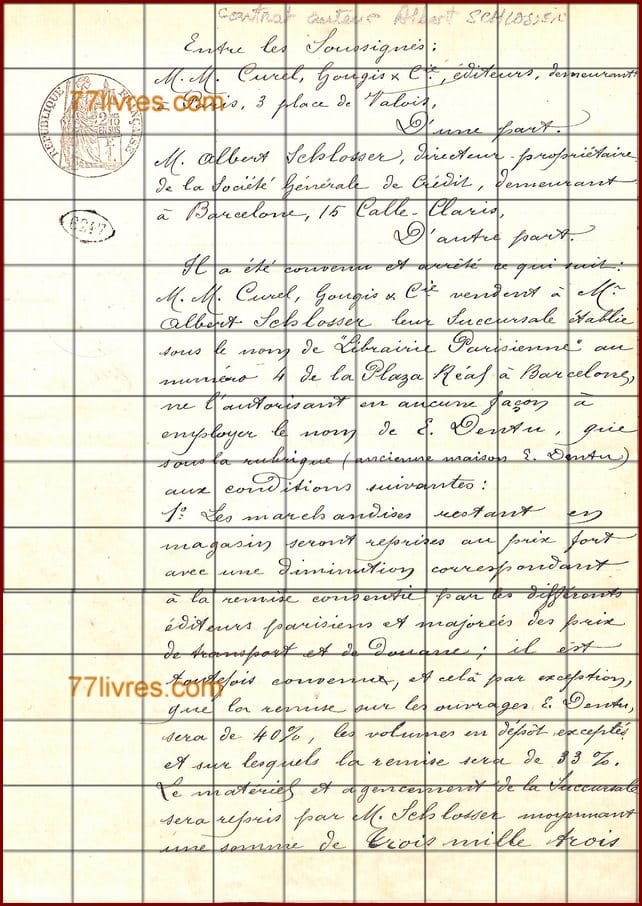 contrat auteur Albert SCHLOSSER
Entre les Soussignés :
M. M. Curel, Gougis & Cie, éditeurs, demeurant
à Paris, 3 place de Valois,
D'une part.
M. Albert Schlosser, directeur-propriétaire
de la Société Générale de Crédit, demeurant
à Barcelone, 15 Calle-Claris,
D'autre part.
Il a été convenu et arrêté ce qui suit :
M. M. Curel, Gougis & Cie vendent à Mr
Albert Schlosser leur Succursale établie
sous le nom de "Librairie Parisienne" au
numéro 4 de la Plaza Réal à Barcelone,
ne l'autorisant en aucune façon à
employer le nom de E. Dentu, que
sous la rubrique (ancienne maison E. Dentu)
aux conditions suivantes :
1º Les marchandises restant en
magasin seront reprises au prix fort
avec une diminution correspondant
à la remise consentie par les différents
éditeurs parisiens et majorées des prix
de transport et de douane ; il est
toutefois convenu, et celà par exception,
que la remise sur les ouvrages E. Dentu,
sera de 40%, les volumes en dépôt exceptés
et sur lesquels la remise sera de 33 %.
Le matériel et agencement de la Succursale
sera repris par M. Schlosser moyennant
une somme de Trois mille trois
REPUBLIQUE FRANÇAISE
77livres.com
77livres.com